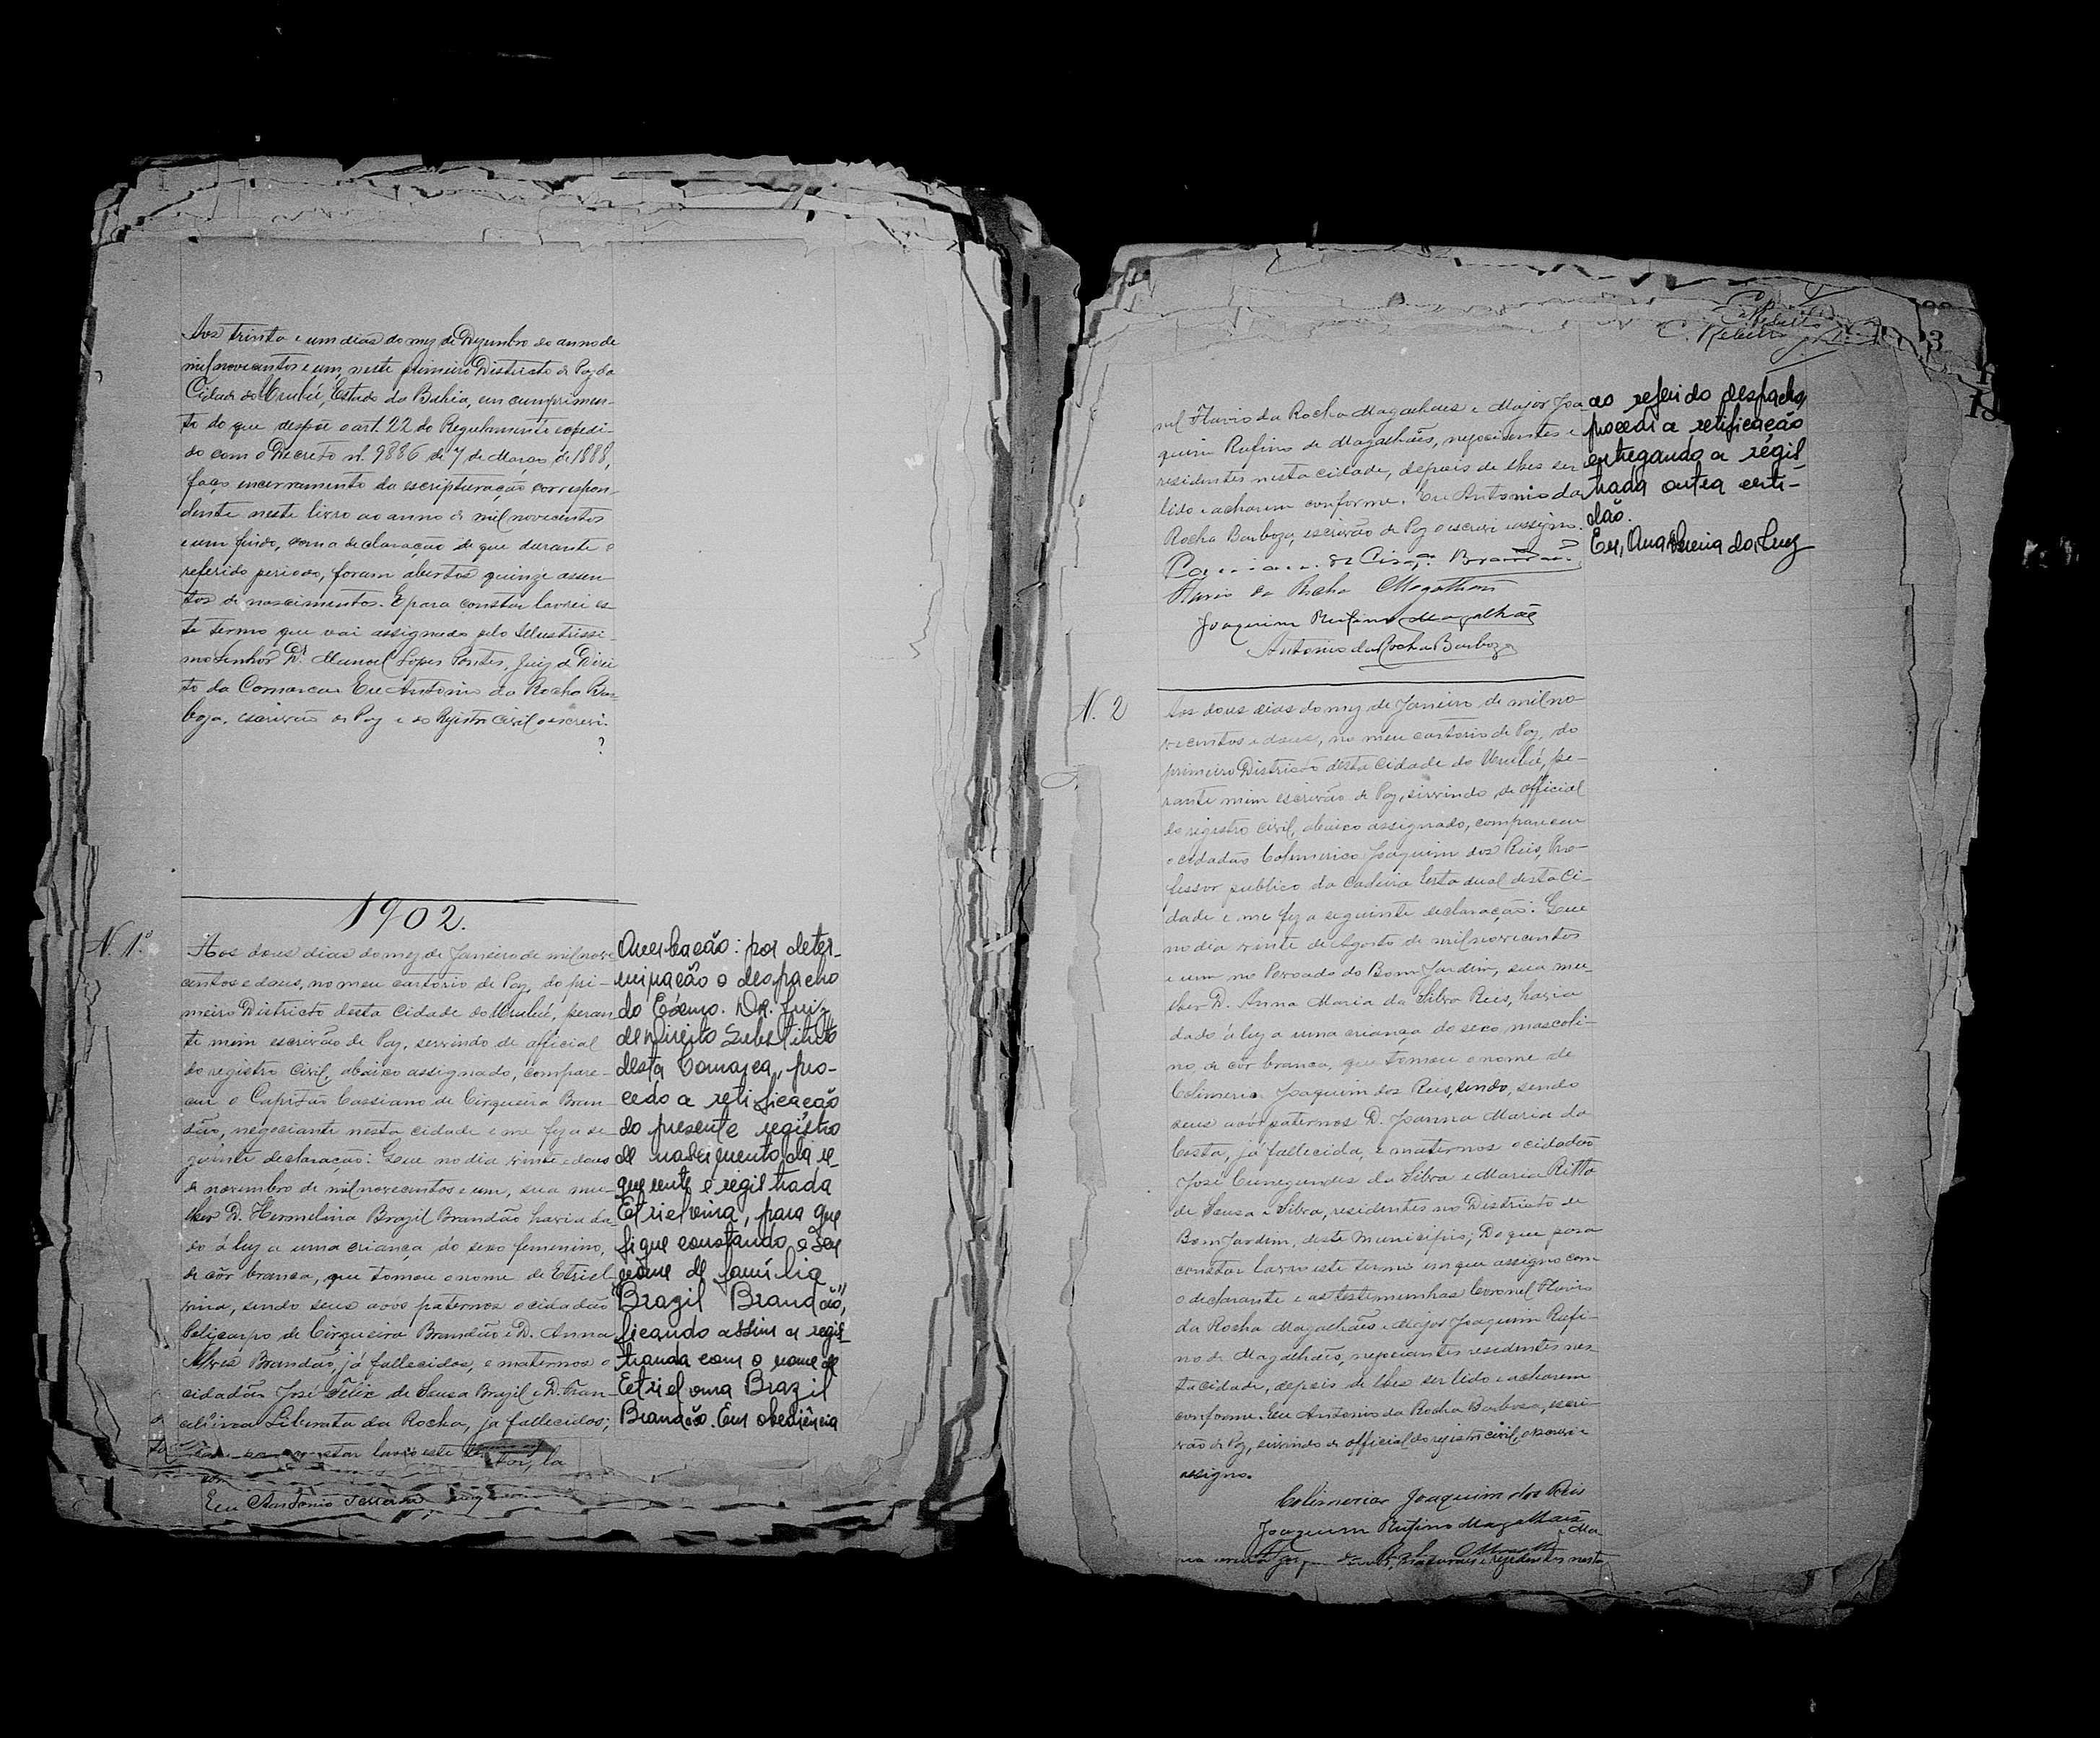 Aos trinta e um dias do mez de Dezembro do anno de
mil novecentos e um, neste primeiro Districto de Paz da
Cidade do Urubú, Estado da Bahia, em cumprimen-
to do que despõe o art. 22 do Regulamento expedi-
do com o Decreto nº 9886 de 7 de Março de 1888,
faço encerramento da escripturação correspon-
dente neste livro ao anno de mil novecentos
e um findo, com a declaração de que durante o
referido periodo, foram abertos quinze assen-
tos de nascimentos. E para constar lavrei es-
te termo que vai assignado pelo Illustrissi-
mo Senhor Dr. Manoel Lopes Pontes, Juiz de Direi
to da Comarca. Eu Antonio da Rocha Bar-
boza, escrivão de Paz e do Registro Civil o escrevi.
?
1902.
N. 1º
Aos dous dias do mez de Janeiro de mil nove
centos e dous, no meu cartorio de Paz, do pri-
meiro Districto desta Cidade do Urubú, peran
te mim escrivão de Paz, servindo de official
do registro civil, abaixo assignado, compare-
ceu o Capitão Cassiano de Cirqueira Bran
dão, negociante nesta cidade e me fez a se-
guinte declaração: Que no dia vinte e dous
de novembro de mil novecentos e um, sua mu-
lher D. Hermelina Brazil Brandão havia da
do á luz a uma criança do sexo feminino,
de côr branca, que tomou o nome de Etriel
vina, sendo seus avós paternos o cidadão
Policarpo de Cirqueira Brandão e D. Anna
Alves Brandão, já fallecidos, e maternos o
cidadão José Felix de Sousa Brazil e D. Fran
celina Liberata da Rocha, já fallecidos;
constar lavro este
Eu Antonio
Averbação: por deter-
minação o despacho
do Exmo. Dr. Juiz
de Direito Substituto
desta Comarca, pro-
cedo a retificação
do presente registro
de nascimento da re-
querente e registrada
Etrielvina, para que
fique constando o seu
nome de família
"Brazil Brandão",
ficando assim a regis-
tranda com o nome de
Etrielvina Brazil
Brandão. Em obediência
C. Rebello
3
nel Flavio da Rocha Magalhães e Major Joa
quim Rufino de Magalhães, negociantes e
residentes nesta cidade, depois de lhes ser
lido e acharem conforme. Eu Antonio da
Rocha Barboza, escrivão de Paz o escrevi e assigno.
Brandão.
Flavio da Rocha Magalhães
Joaquim Rufino Magalhães
Antonio da Rocha Barboza
ao referido despacho,
procedi a retificação
entregando a regis-
trada outra certi-
dão.
Eu, Ana da Luz
N. 2
Aos dous dias do mez de Janeiro de mil no-
vecentos e dous, no meu cartorio de Paz, do
primeiro Districto desta Cidade do Urubú, pe-
rante mim escrivão de Paz, servindo de official
do registro civil, abaixo assignado, compareceu
o cidadão Colimerio Joaquim dos Reis, Pro-
fessor publico da Cadeira Estadual desta Ci-
dade e me fez a seguinte declaração: Que
no dia vinte de Agosto de mil novecentos
e um no Povoado do Bom Jardim, sua mu-
lher D. Anna Maria da Silva Reis, havia
dado á luz a uma criança do sexo mascoli-
no, de côr branca, que tomou o nome de
Colimerio Joaquim dos Reis, sendo, sendo
seus avós paternos D. Joanna Maria da
Costa, já fallecida, e maternos o cidadão
José Cunegundes da Silva e Maria Ritta
de Sousa e Silva, residentes no Districto de
Bom Jardim, deste Municipio; Do que para
constar lavro este termo em que assigno com
o declarante e as testemunhas Coronel Flavio
da Rocha Magalhães e Major Joaquim Rufi-
no de Magalhães, negociantes residentes nes-
ta cidade, depois de lhes ser lido e acharem
conforme. Eu Antonio da Rocha Barbosa, escri-
vão de Paz, servindo de official do registro civil, o escrevi e
assigno.
Colimerio Joaquim dos Reis
Joaquim Rufino Magalhães
naturaes e residentes nesta